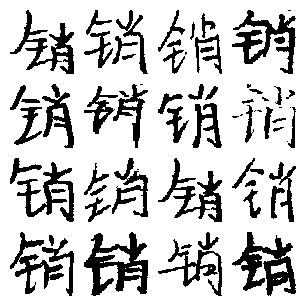 销销销销
销销销销
销销销销
销销销销